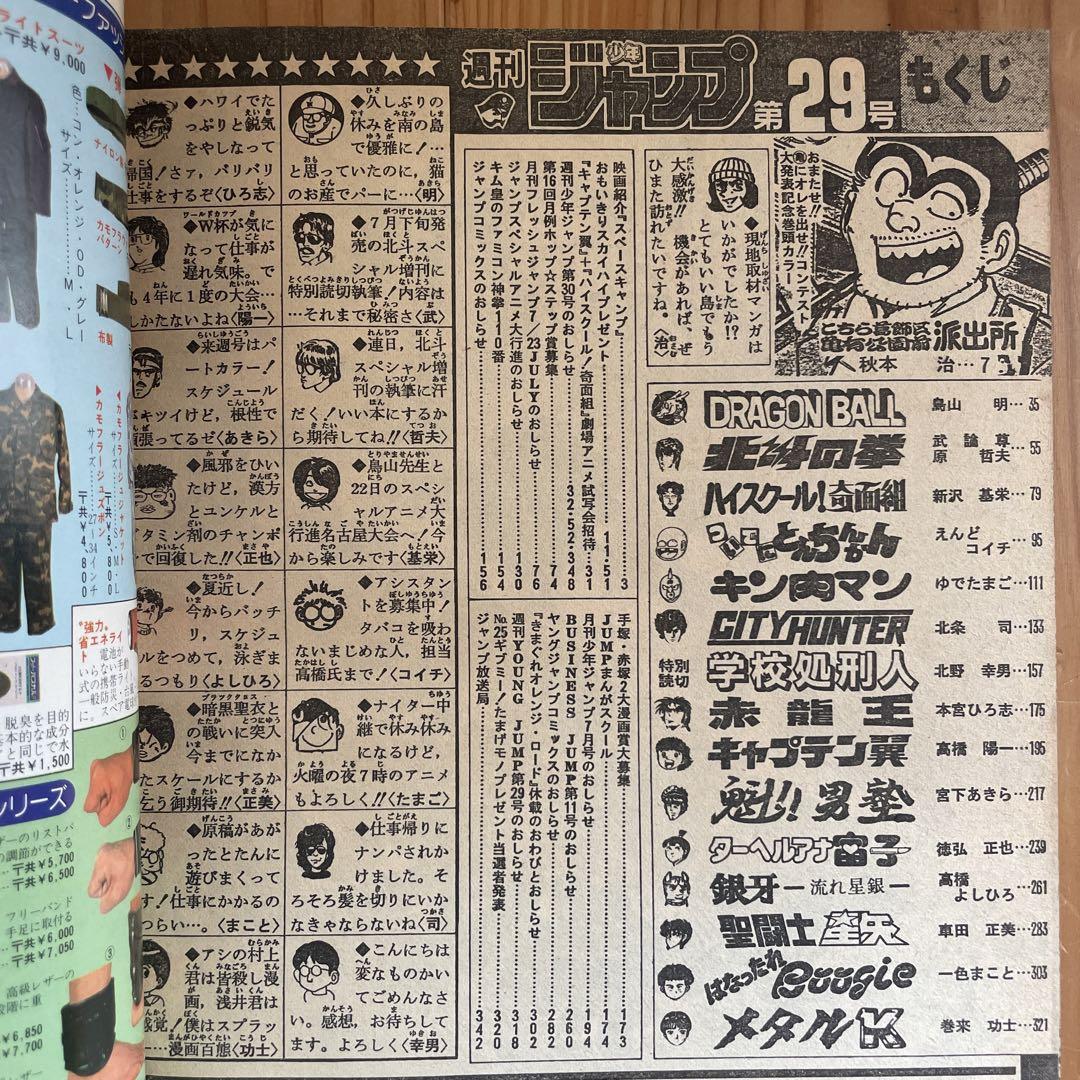 週刊少年ジャンプ
第29号
もくじ
おまたせ!!
オレを出せ!!コンテスト
大発表記念巻頭カラー
こちら葛飾区
亀有公園前
派出所
秋本 治…7
DRAGON BALL
鳥山 明…35
北斗の拳
武論尊
原 哲夫
…55
ハイスクール!奇面組
新沢 基栄…79
ついでにとんちんかん
えんど
コイチ
…95
キン肉マン
ゆでたまご…111
CITY HUNTER
北条 司…133
特別
読切
学校処刑人
北野 幸男…157
赤龍王
本宮ひろ志…175
キャプテン翼
高橋 陽一…195
魁!!男塾
宮下あきら…217
ターヘルアナ富子
徳弘 正也…239
銀牙
―流れ星銀―
高橋
よしひろ
…261
聖闘士星矢
車田 正美…283
はなったれBoogie
一色まこと…303
メタルK
巻来 功士…321
◆現地取材マンガは
いかがでしたか!?
とてもいい島でもう
大感激!!機会があれば、ぜ
ひまた訪れたいですね。
〈治〉
映画紹介『スペースキャンプ』…3
おもいきりスカイハイプレゼント…11・51
『キャプテン翼』+『ハイスクール!奇面組』劇場アニメ試写会招待…31
週刊少年ジャンプ第30号のおしらせ…32・52・348
第16回月例ホップ☆ステップ賞募集…74
月刊フレッシュジャンプ7/23JULYのおしらせ…76
ジャンプスペシャルアニメ大行進のおしらせ…130
キム皇のファミコン神拳110番…154
ジャンプコミックスのおしらせ…156
手塚・赤塚2大漫画賞大募集…173
JUMPまんがスクール…174
月刊少年ジャンプ7月号のおしらせ…194
BUSINESS JUMP第11号のおしらせ…260
ヤングジャンプコミックスのおしらせ…282
『きまぐれオレンジ・ロード』休載のおわびとおしらせ…302
週刊YOUNG JUMP第29号のおしらせ…318
No.25ギブミー!たまげモノプレゼント当選者発表…320
ジャンプ放送局…342
◆久しぶりの
休みを南の島
で優雅に!…
と思っていたのに,猫
のお産でパーに…〈明〉
◆7月下旬発
売の北斗スペ
シャル増刊に
特別読切執筆!内容は
…それまで秘密さ〈武〉
◆連日,北斗
スペシャル増
刊の執筆に汗
だく!いい本にするか
ら期待してね!!〈哲夫〉
◆鳥山先生と
22日のスペシ
ャルアニメ大
行進名古屋大会へ!今
から楽しみです〈基栄〉
◆アシスタン
トを募集中!
タバコを吸わ
ないまじめな人,担当
高橋氏まで!〈コイチ〉
◆ナイター中
継で休み休み
になるけど,
火曜の夜7時のアニメ
もよろしく!!〈たまご〉
◆仕事帰りに
ナンパされか
けました。そ
ろそろ髪を切りにいか
なきゃならないね〈司〉
◆こんにちは
変なものかい
てごめんなさ
い。感想,お待ちして
ます。よろしく〈幸男〉
◆ハワイでた
っぷりと鋭気
をやしなって
帰国!さァ,バリバリ
仕事をするぞ〈ひろ志〉
◆W杯が気に
なって仕事が
遅れ気味。で
も4年に1度の大会…
しかたないよね〈陽一〉
◆来週号はパ
ートカラー!
スケジュール
キツイけど,根性で
張ってるぜ〈あきら〉
◆風邪をひい
たけど,漢方
とユンケルと
タミン剤のチャンポ
で回復した!!〈正也〉
◆夏近し!
今からバッチ
リ,スケジュ
ルをつめて,泳ぎま
るつもり〈よしひろ〉
◆暗黒聖衣と
の戦いに突入
今までになか
たスケールにするから
乞う御期待!!〈正美〉
◆原稿があが
ったとたんに
遊びまくって
す!仕事にかかるの
つらい…。〈まこと〉
◆アシの村上
君は皆殺し漫
画,浅井君は
感覚!僕はスプラッ
……漫画百態〈功士〉
ライトスーツ
〒共¥9,000
色…コン・オレンジ・OD・グレー
サイズ…M・L
ナイロン製
カモフラージュ
パターン
布製
▲カモフラージュジャケット
サイズ…S・M・L
〒共¥5,800
▲カモフラージュズボン
サイズ…27〜34インチ
〒共¥4,800
"強力"
省エネライト
脱臭を目的
本的な成分
と同じで水
〒共¥1,500
シリーズ
ザーのリストバ
の調節ができる
…〒共¥5,700
…〒共¥6,500
フリーバンド
手足に取付る
…〒共¥6,000
…〒共¥7,050
高級レザーの
段階に重
¥6,850
¥7,700
①
②
③